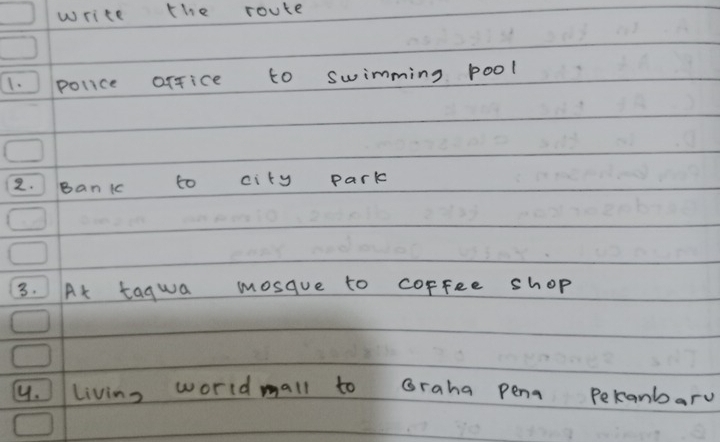 write the route
1. Police office to swimming pool
2. Bank to city park
3. At taqwa mosque to coffee shop
4. Living world mall to Graha Pena Pekanbaru